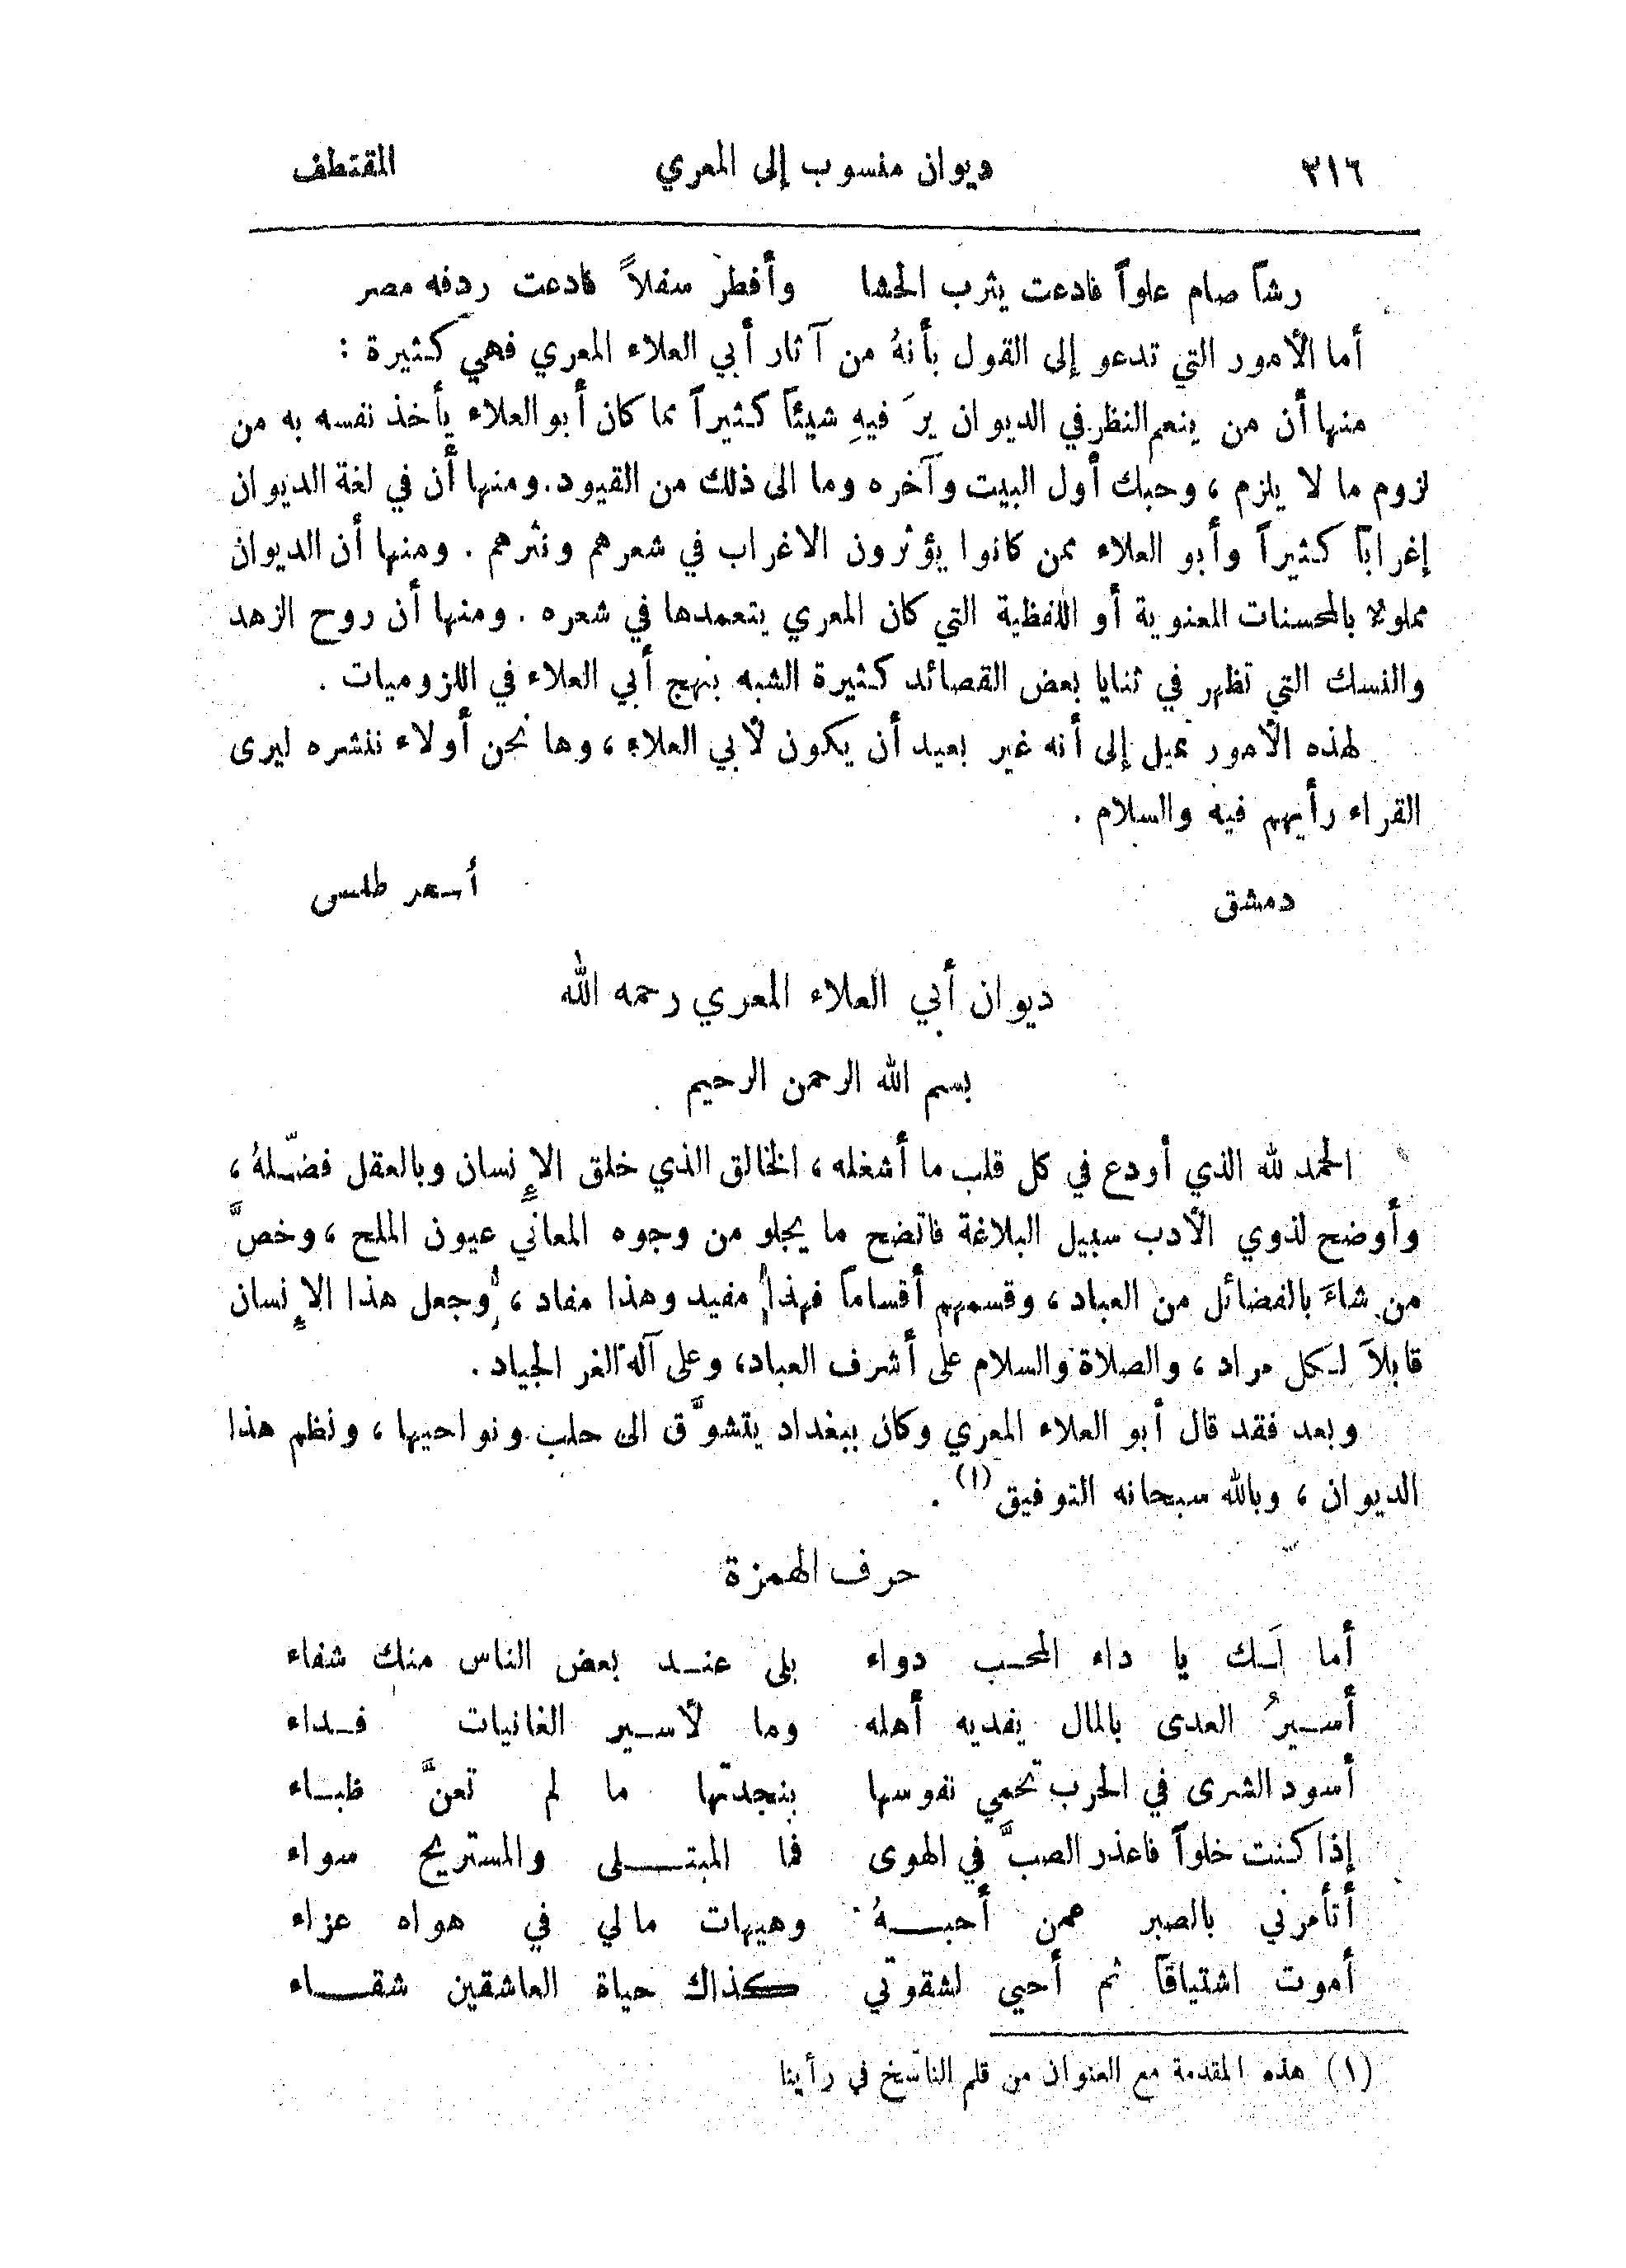 ٣١٦ ديوان منسوب إلى المعري المقتطف
رشاً صام علواً فادعت يثرب الحشا وأفطر سفلاً فادعت ردفه مصر
أما الأمور التي تدعو إلى القول بأنهُ من آثار أبي العلاء المعري فهي كثيرة :
منها أن من ينعم النظر في الديوان يرَ فيهِ شيئاً كثيراً مما كان أبو العلاء يأخذ نفسه به من
لزوم ما لا يلزم ، وحبك أول البيت وآخره وما الى ذلك من القيود . ومنها أن في لغة الديوان
إغراباً كثيراً وأبو العلاء ممن كانوا يؤثرون الاغراب في شعرهم ونثرهم . ومنها أن الديوان
مملوء بالمحسنات المعنوية أو اللفظية التي كان المعري يتعمدها في شعره . ومنها أن روح الزهد
والنسك التي تظهر في ثنايا بعض القصائد كثيرة الشبه بنهج أبي العلاء في اللزوميات .
لهذه الأمور نميل إلى أنه غير بعيد أن يكون لأبي العلاء ، وها نحن أولاء ننشره ليرى
القراء رأيهم فيه والسلام .
دمشق أسعد طلس
ديوان أبي العلاء المعري رحمه الله
بسم الله الرحمن الرحيم
الحمد لله الذي أودع في كل قلب ما أشغله ، الخالق الذي خلق الإنسان وبالعقل فضّلهُ ،
وأوضح لذوي الأدب سبيل البلاغة فاتضح ما يجلو من وجوه المعاني عيون الملح ، وخصَّ
من شاءَ بالفضائل من العباد ، وقسمهم أقساماً فهذا مفيد وهذا مفاد ، وجعل هذا الإنسان
قابلاً لكل مراد ، والصلاة والسلام على أشرف العباد ، وعلى آله الغر الجياد .
وبعد فقد قال أبو العلاء المعري وكان ببغداد يتشوَّق الى حلب ونواحيها ، ونظم هذا
الديوان ، وبالله سبحانه التوفيق (١) .
حرف الهمزة
أما لَك يا داء المحب دواء بلى عند بعض الناس منك شفاء
أسيرُ العدى بالمال يفديه أهله وما لأسير الغانيات فداء
أسود الشرى في الحرب تحمي نفوسها بنجدتها ما لم تعنَّ ظباء
إذا كنت خلواً فاعذر الصبَّ في الهوى فما المبتلى والمستريح سواء
أتأمرني بالصبر عمن أحبهُ وهيهات مالي في هواه عزاء
أموت اشتياقاً ثم أحيي لشقوتي كذاك حياة العاشقين شقاء
(١) هذه المقدمة مع العنوان من قلم الناسخ في رأينا